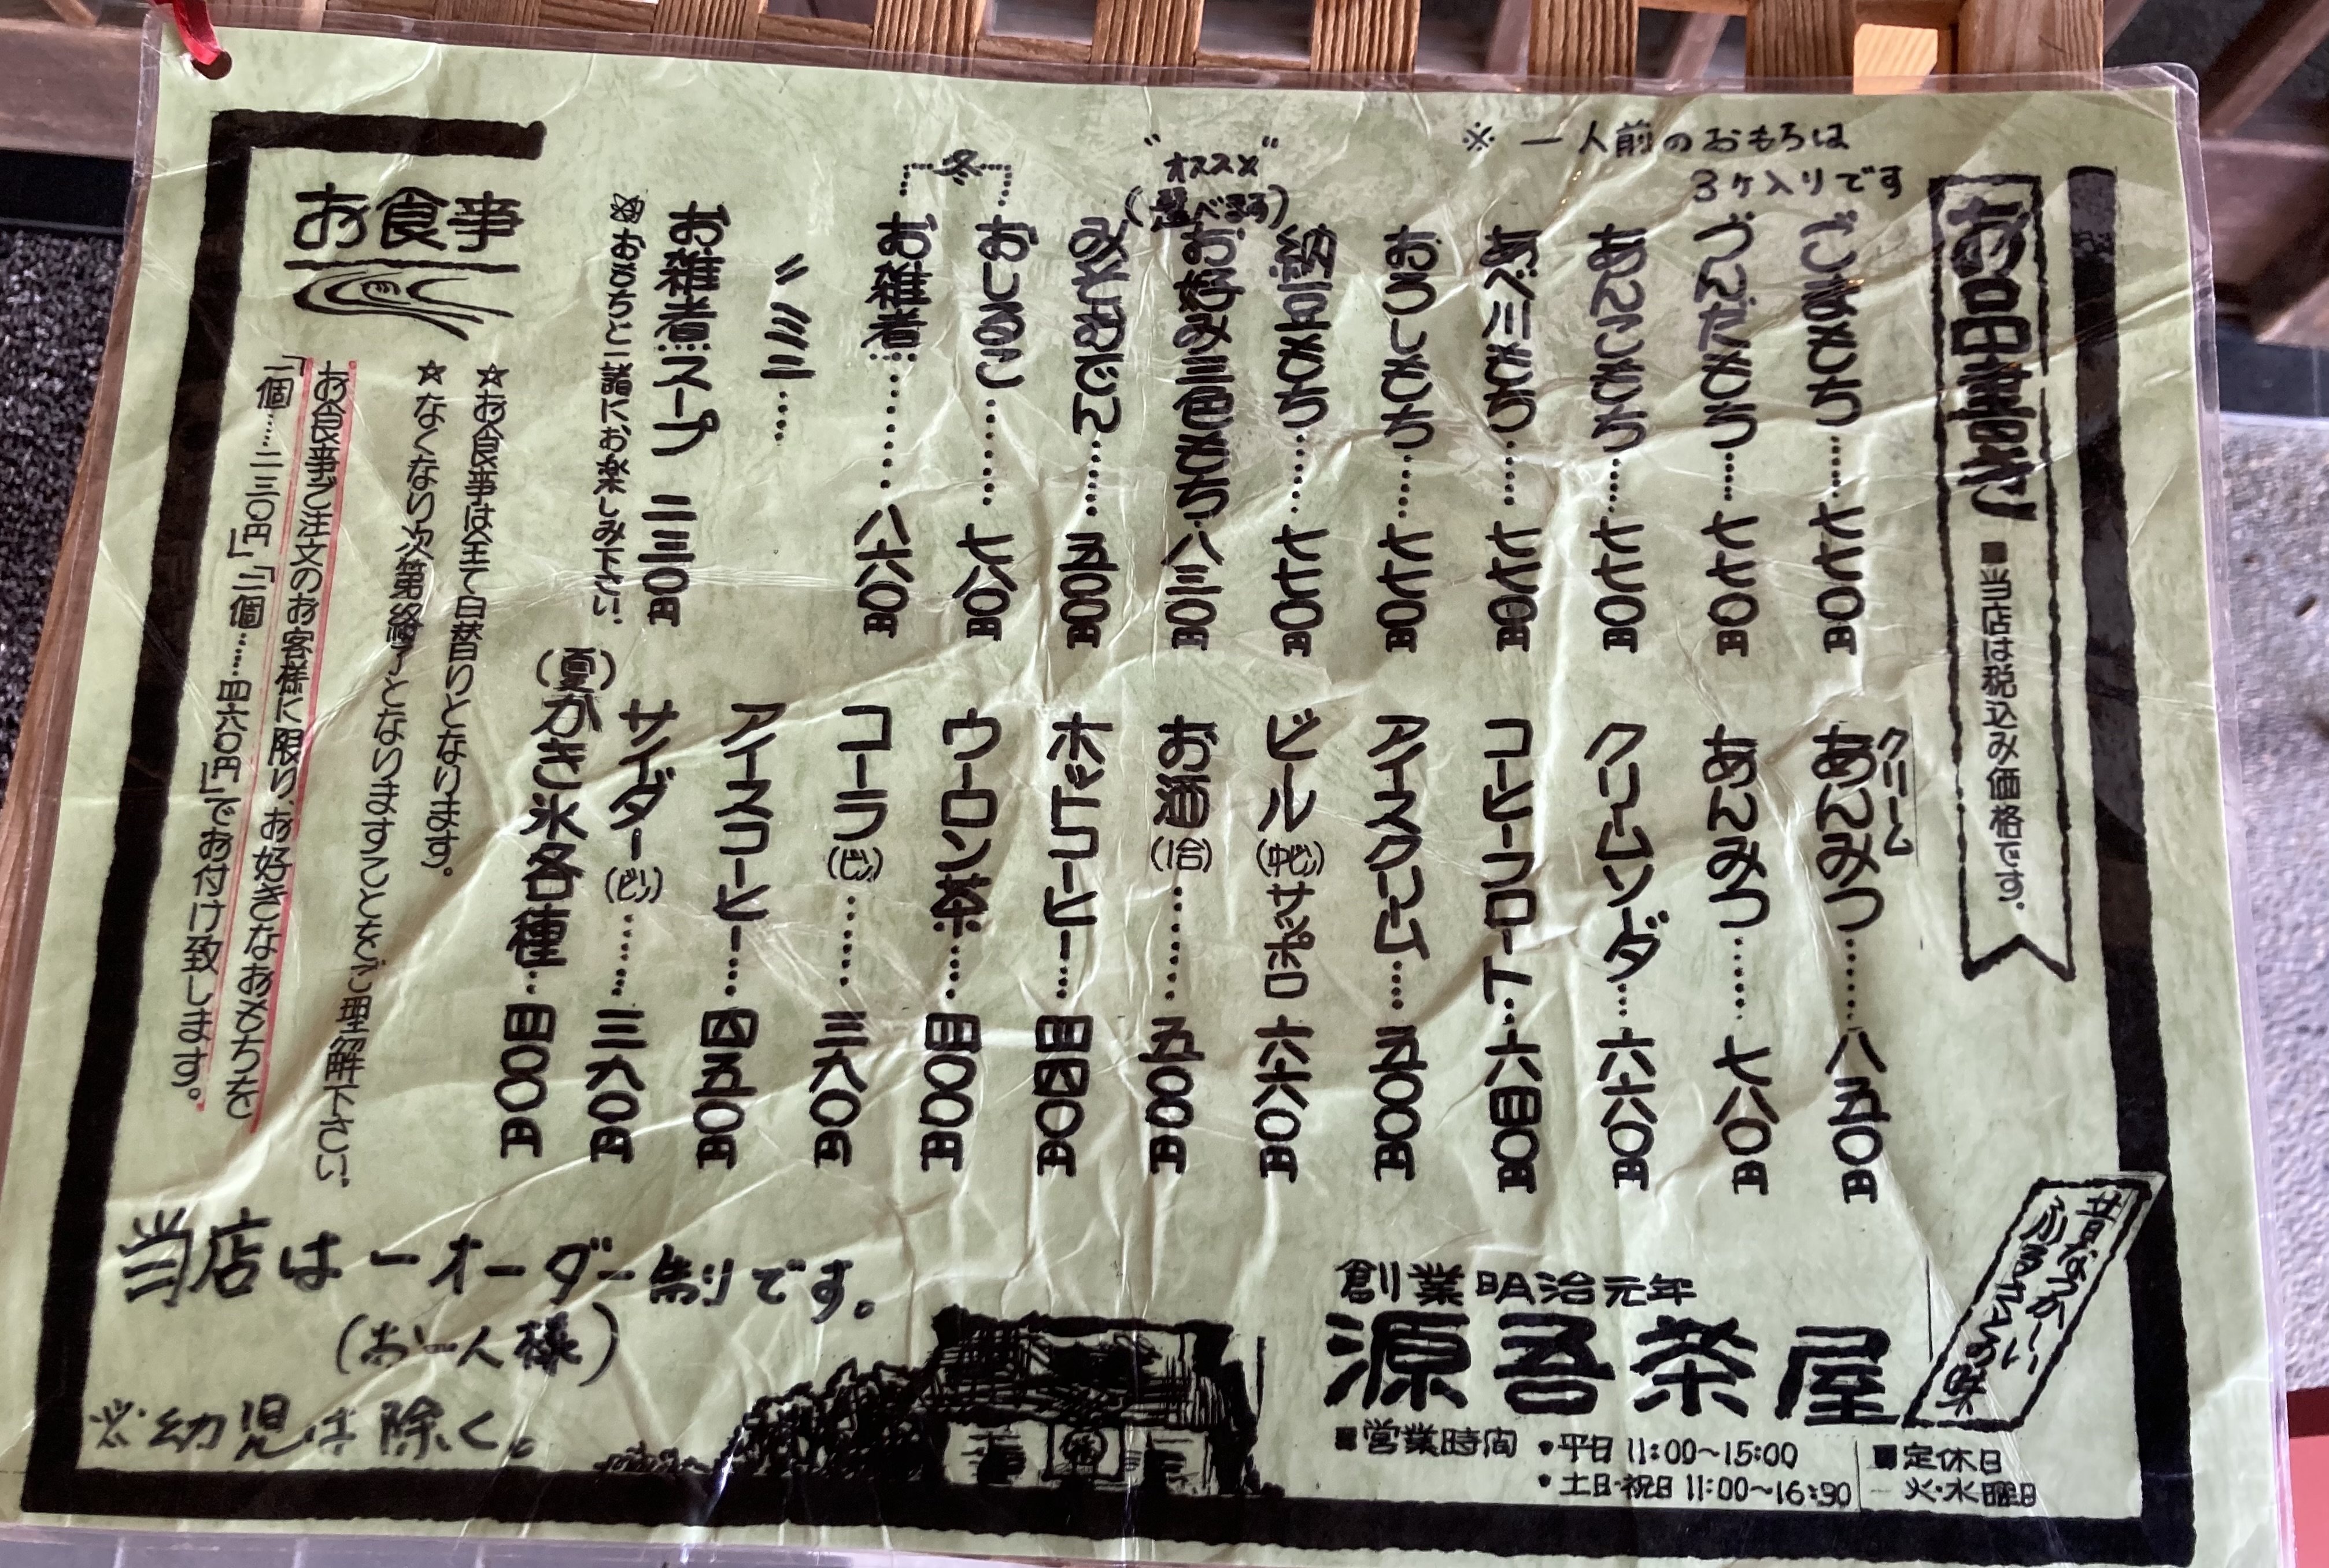 お品書き
■当店は税込み価格です。
※一人前のおもちは
3ヶ入りです
ごまもち……七七〇円
づんだもち……七七〇円
あんこもち……七七〇円
あべ川もち……七七〇円
おろしもち……七七〇円
納豆もち……七七〇円
"オススメ"
お好み三色もち 八三〇円
みそおでん……五〇〇円
冬
おしるこ……七八〇円
お雑煮……八六〇円
お雑煮スープ 二三〇円
※おもちと一諸にお楽しみ下さい。
クリーム
あんみつ……八五〇円
あんみつ……七八〇円
クリームソーダ…六六〇円
コーヒーフロート…六四〇円
アイスクリーム…五〇〇円
ビール(中ビン)サッポロ 六六〇円
お酒(1合)……五〇〇円
ホットコーヒー…四四〇円
ウーロン茶…四〇〇円
コーラ(ビン)……三八〇円
アイスコーヒー…四五〇円
サイダー(ビン)……三八〇円
(夏)かき氷各種…四〇〇円
お食事
☆お食事は全て日替りとなります。
☆なくなり次第終了となりますことをご理解下さい。
お食事ご注文のお客様に限り、お好きなおもちを
「一個……二三〇円」「二個……四六〇円」でお付け致します。
当店は一オーダー制です。
(お一人様)
※幼児は除く。
昔なつか〜い
ふるさとの味
創業明治元年
源吾茶屋
■営業時間 •平日 11:00〜15:00
•土日・祝日 11:00〜16:30
■定休日
火・水曜日